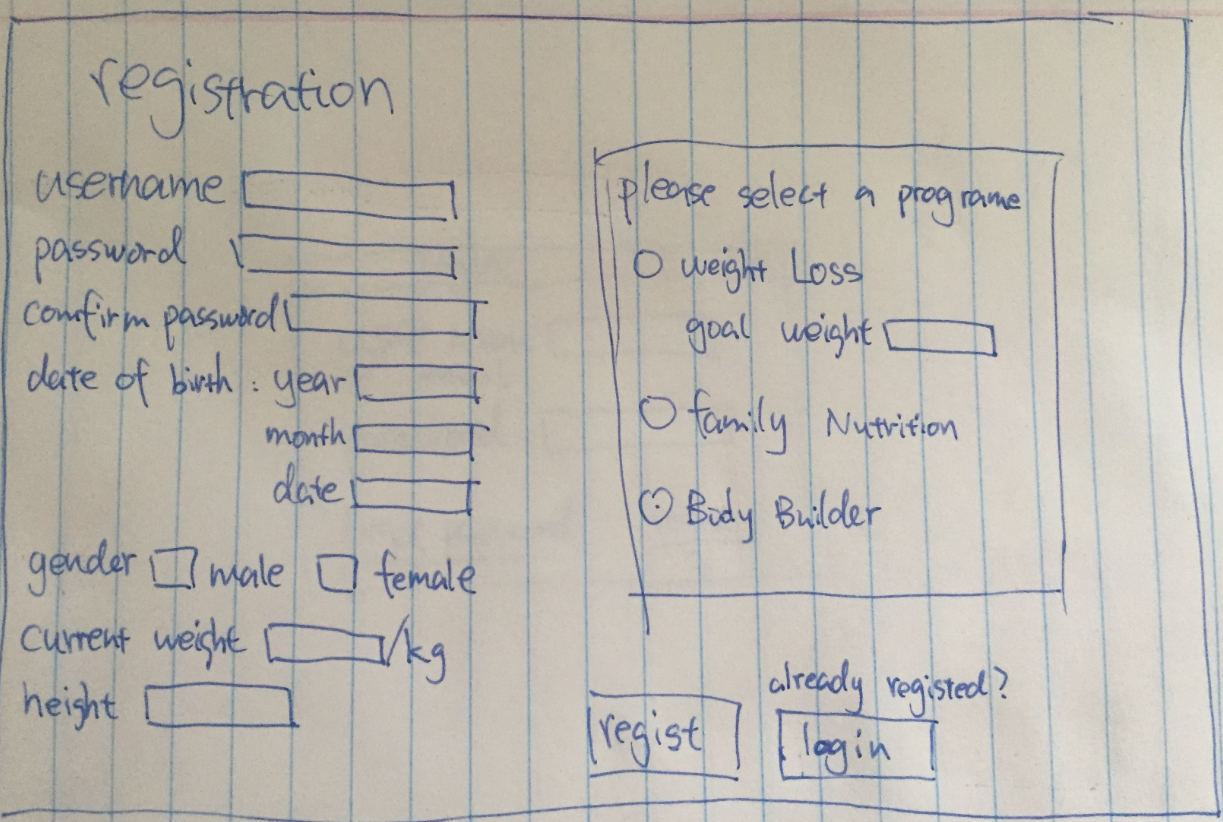 registration
username
password
comfirm password
date of birth : year
month
date
gender male female
current weight /kg
height
please select a programe
weight Loss
goal weight
family Nutrition
Body Builder
already registed?
regist
login